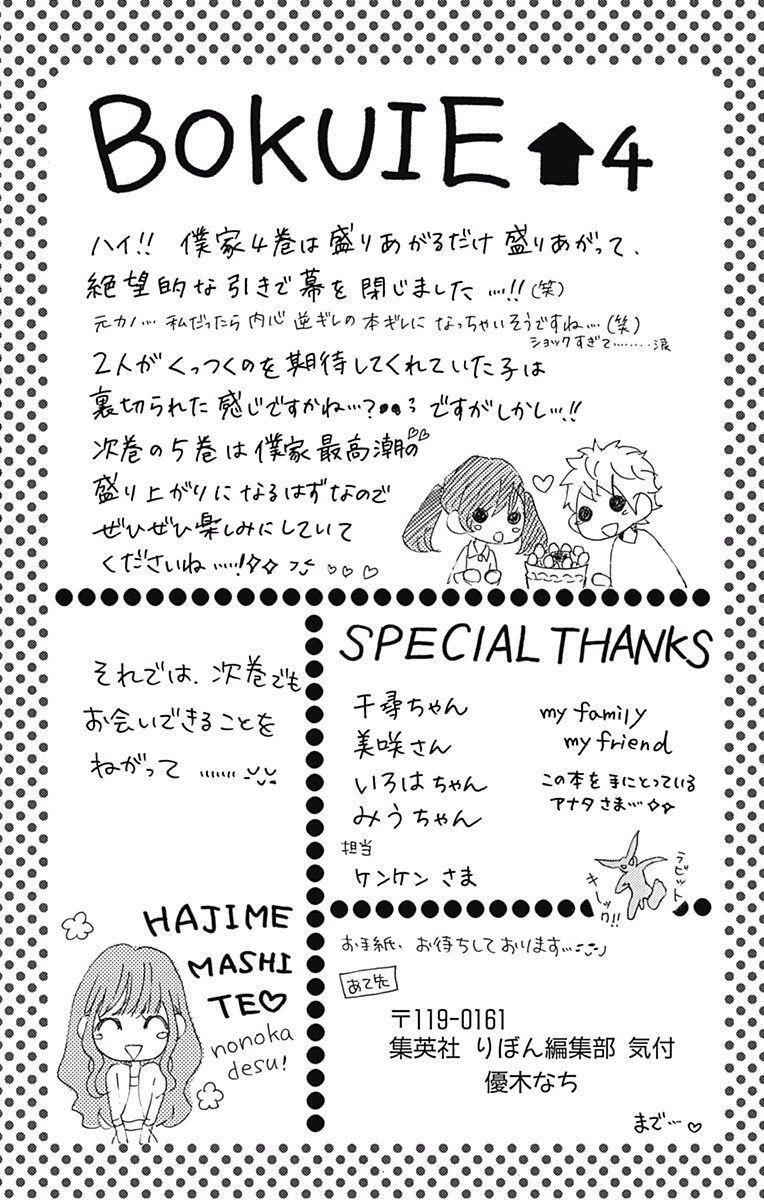 BOKUIE⬆4
ハイ!! 僕家4巻は盛りあがるだけ盛りあがって、
絶望的な引きで幕を閉じました…!!(笑)
元カノ… 私だったら内心逆ギレの本ギレになっちゃいそうですね…(笑)
ショックすぎて………涙
2人がくっつくのを期待してくれていた子は
裏切られた感じですかね…? ですがしかし…!!
次巻の5巻は僕家最高潮の♡♡
盛り上がりになるはずなので
ぜひぜひ楽しみにしていて
くださいね……!✧✧ ♡♡♡
それでは、次巻でも
お会いできることを
ねがって ……
HAJIME
MASHI
TE♡
nonoka
desu!
SPECIAL THANKS
千尋ちゃん
美咲さん
いろはちゃん
みうちゃん
担当
ケンケン さま
my family
my friend
この本を手にとっている
アナタさま…✧✧
ラビット
キーック!!
お手紙、お待ちしております…
あて先
〒119-0161
集英社 りぼん編集部 気付
優木なち
まで…♡